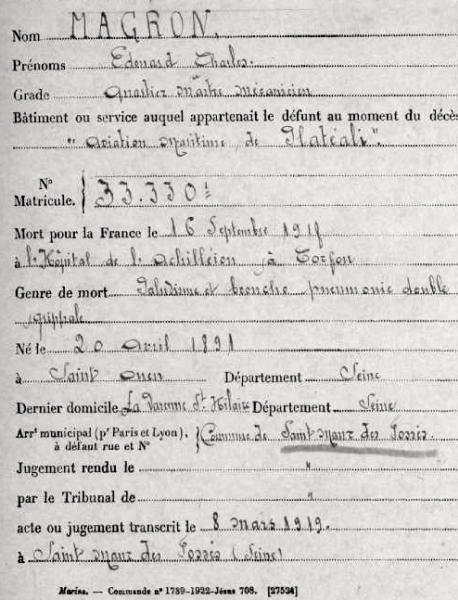 Nom MAGRON.
Prénoms Edouard Charles.
Grade Quartier Maître Mécanicien
Bâtiment ou service auquel appartenait le défunt au moment du décès
"Aviation Maritime de Platéali".
N° Matricule. 33.330
Mort pour la France le 16 Septembre 1918
à l'Hôpital de l'Achilléion à Corfou
Genre de mort Paludisme et broncho pneumonie double
grippale
Né le 20 Avril 1891
à Saint Ouen Département Seine
Dernier domicile La Varenne St Hilaire Département Seine
Arrt municipal (pr Paris et Lyon), à défaut rue et N° Commune de Saint Maur des Fossés.
Jugement rendu le "
par le Tribunal de "
acte ou jugement transcrit le 8 Mars 1919.
à Saint Maur des Fossés (Seine)
Marine. — Commande n° 1789-1922-Jésus 708. [27524]